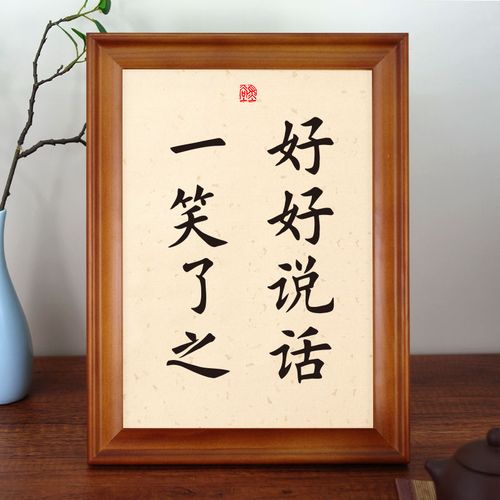 好好说话
一笑了之